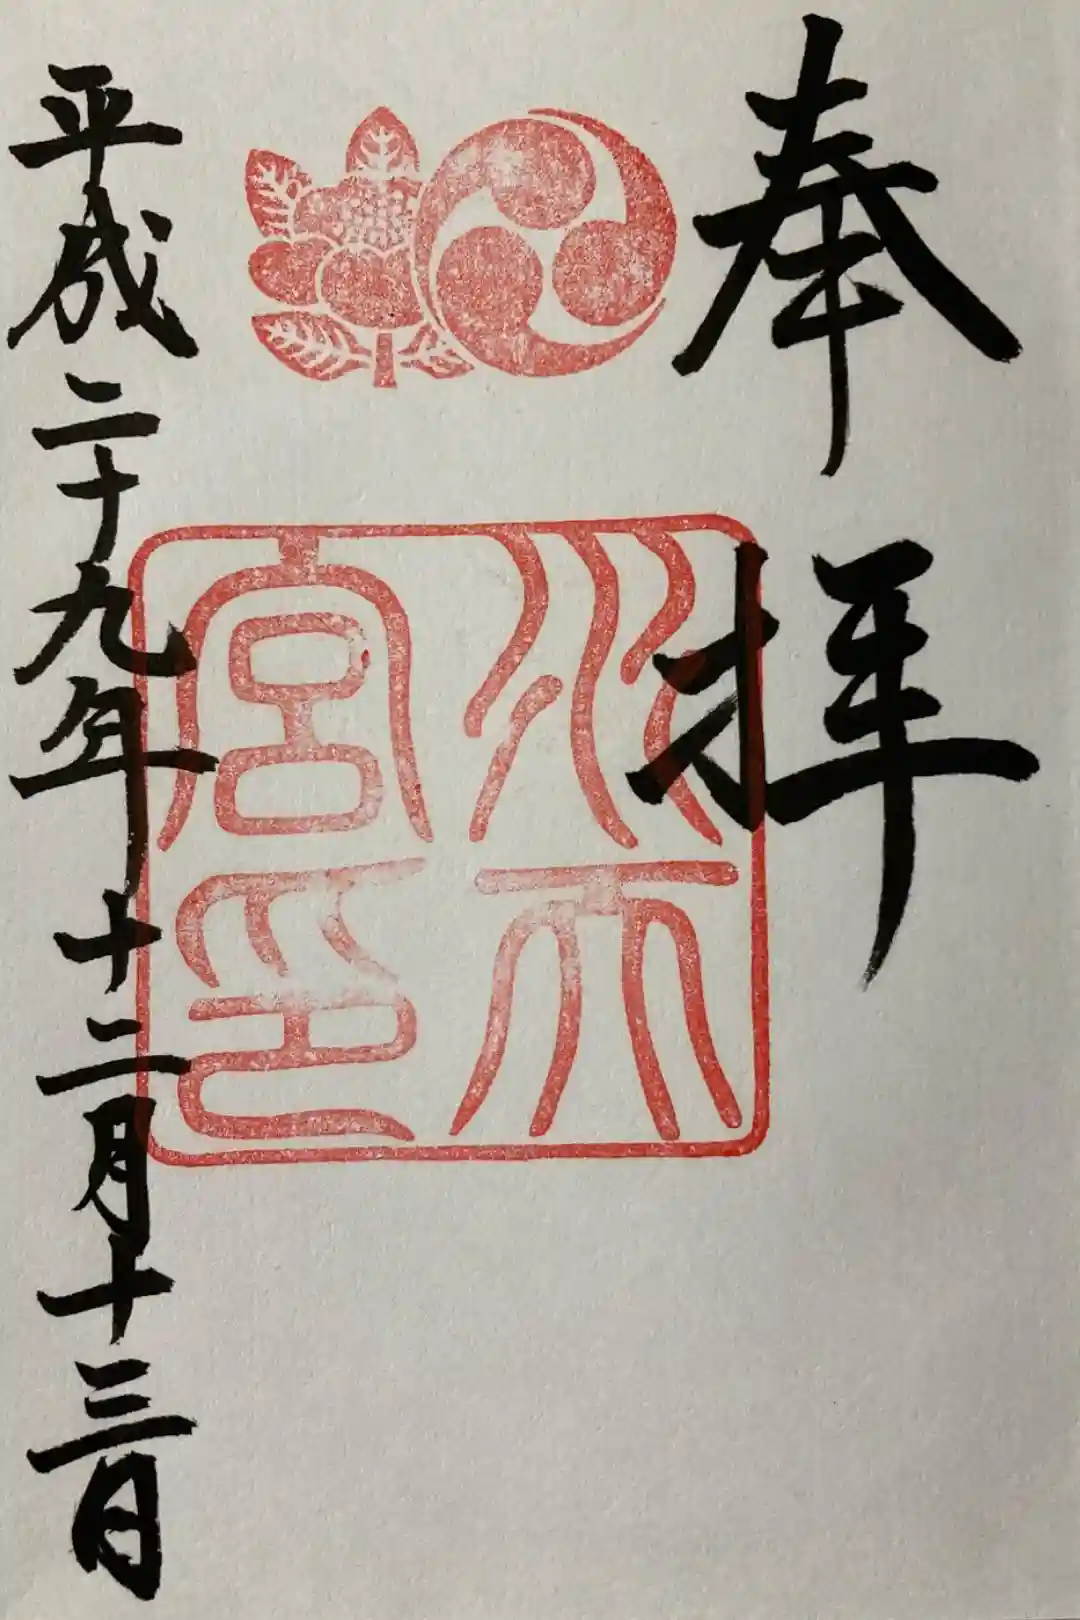 奉拝
氷川
宮印
平成二十九年十二月十三日